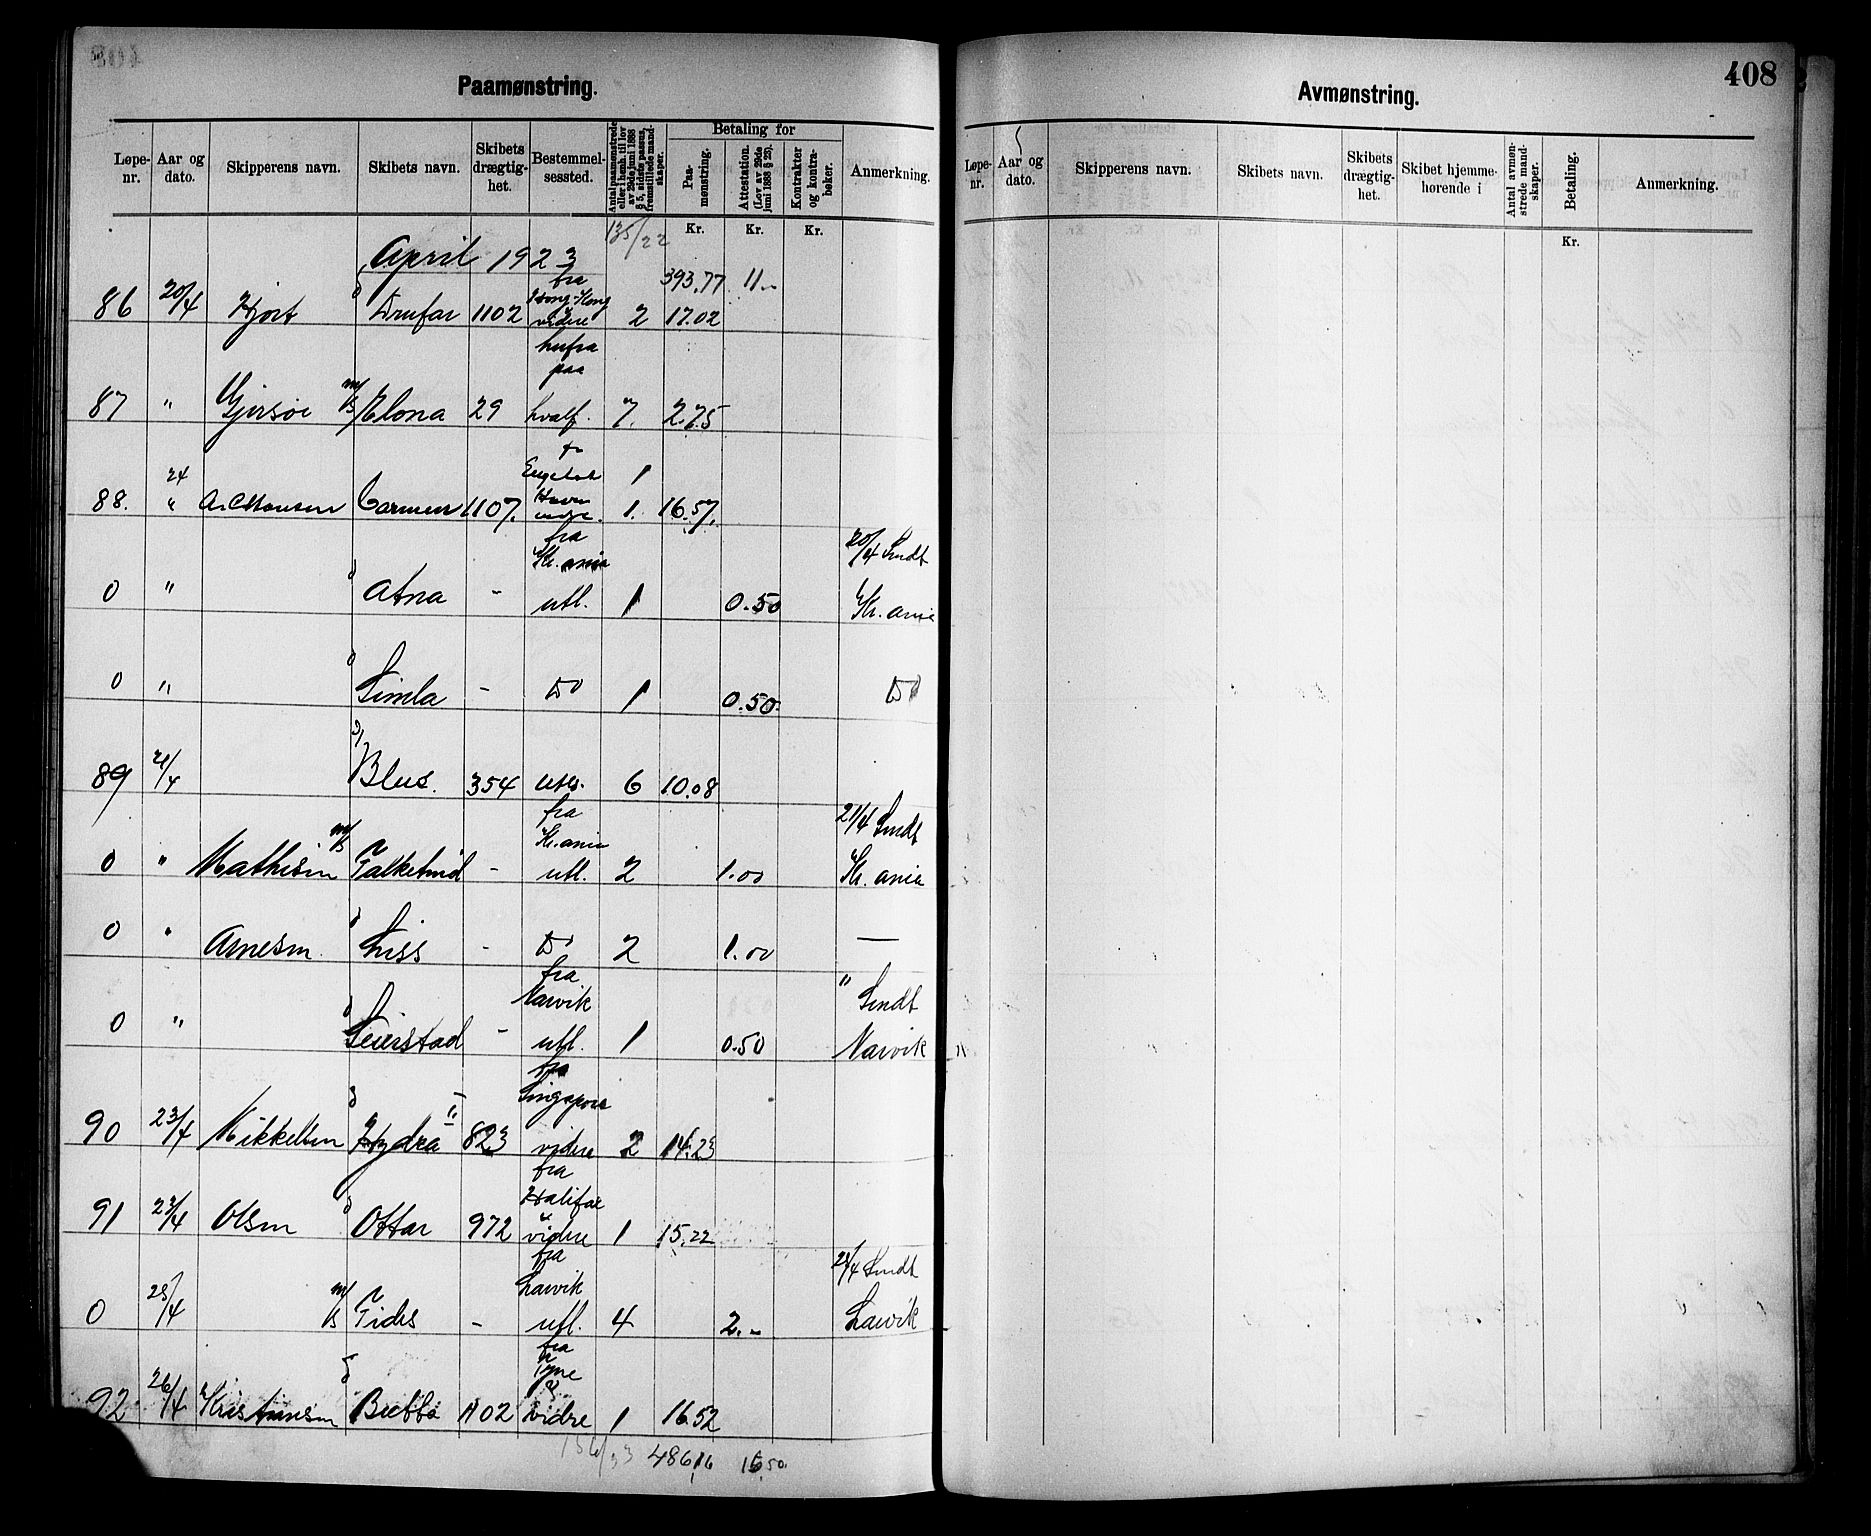 Paamønstring.
Løpe-nr. Aar og dato. Skipperens navn. Skibets navn. Skibets drægtig-het. Bestemmel-sessted. Antal paamønstrede eller i henh. til lov av 29de juni 1888 § 5, sidste passus, fremstillede mand-skaper. Betaling for Paa-mønstring. Attestation. (Lov av 29de juni 1888 § 25). Kontrakter og kontra-bøker. Anmerkning.
135/22 Kr. Kr. Kr.
April 1923
393,77 11.-
fra Hong-Kong
86 20/4 Hjort Drufar 1102 videre 2 17.02
herfra paa
87 " Gjersøe m/s Elona 29 hvalf. 7. 2.75
1
88. 24 " A. C. Hansen Carmen 1107. 1. 16.57.
fra Kr.ania 20/4 Sendt
0 " Atna - utl. 1 0.50 Kr.ania
0 " Simla - Do 1 0.50. Do
89 21/4 Blus. 354 utl. 6 10.08
fra Kr.ania 21/4 Sendt
0 " Mathisen m/s Falketind - utl. 2 1.00 Kr.ania
0 " Arnesen. Liss - Do 2 1.00 —
fra Narvik " Sendt
0 " Seierstad - utl. 1 0.50 Narvik
fra Singapore
90 23/4 Mikkelsen Hydra II 823 videre 2 14.23
fra Halifax
91 23/4 Olsen Ottar 972 videre 1 15.22
fra Larvik 24/4 Sendt
0 25/4 m/s Tides - utl. 4 2.- Larvik
fra Tyne &
92 26/4 Kristiansen Bubbe 1102 vidre 1 16.52
156/33 486,16 16,50.
408
Avmønstring.
Løpe-nr. Aar og dato. Skipperens navn. Skibets navn. Skibets drægtig-het. Skibet hjemme-hørende i Antal avmøn-strede mand-skaper. Betaling. Anmerkning.
Kr.